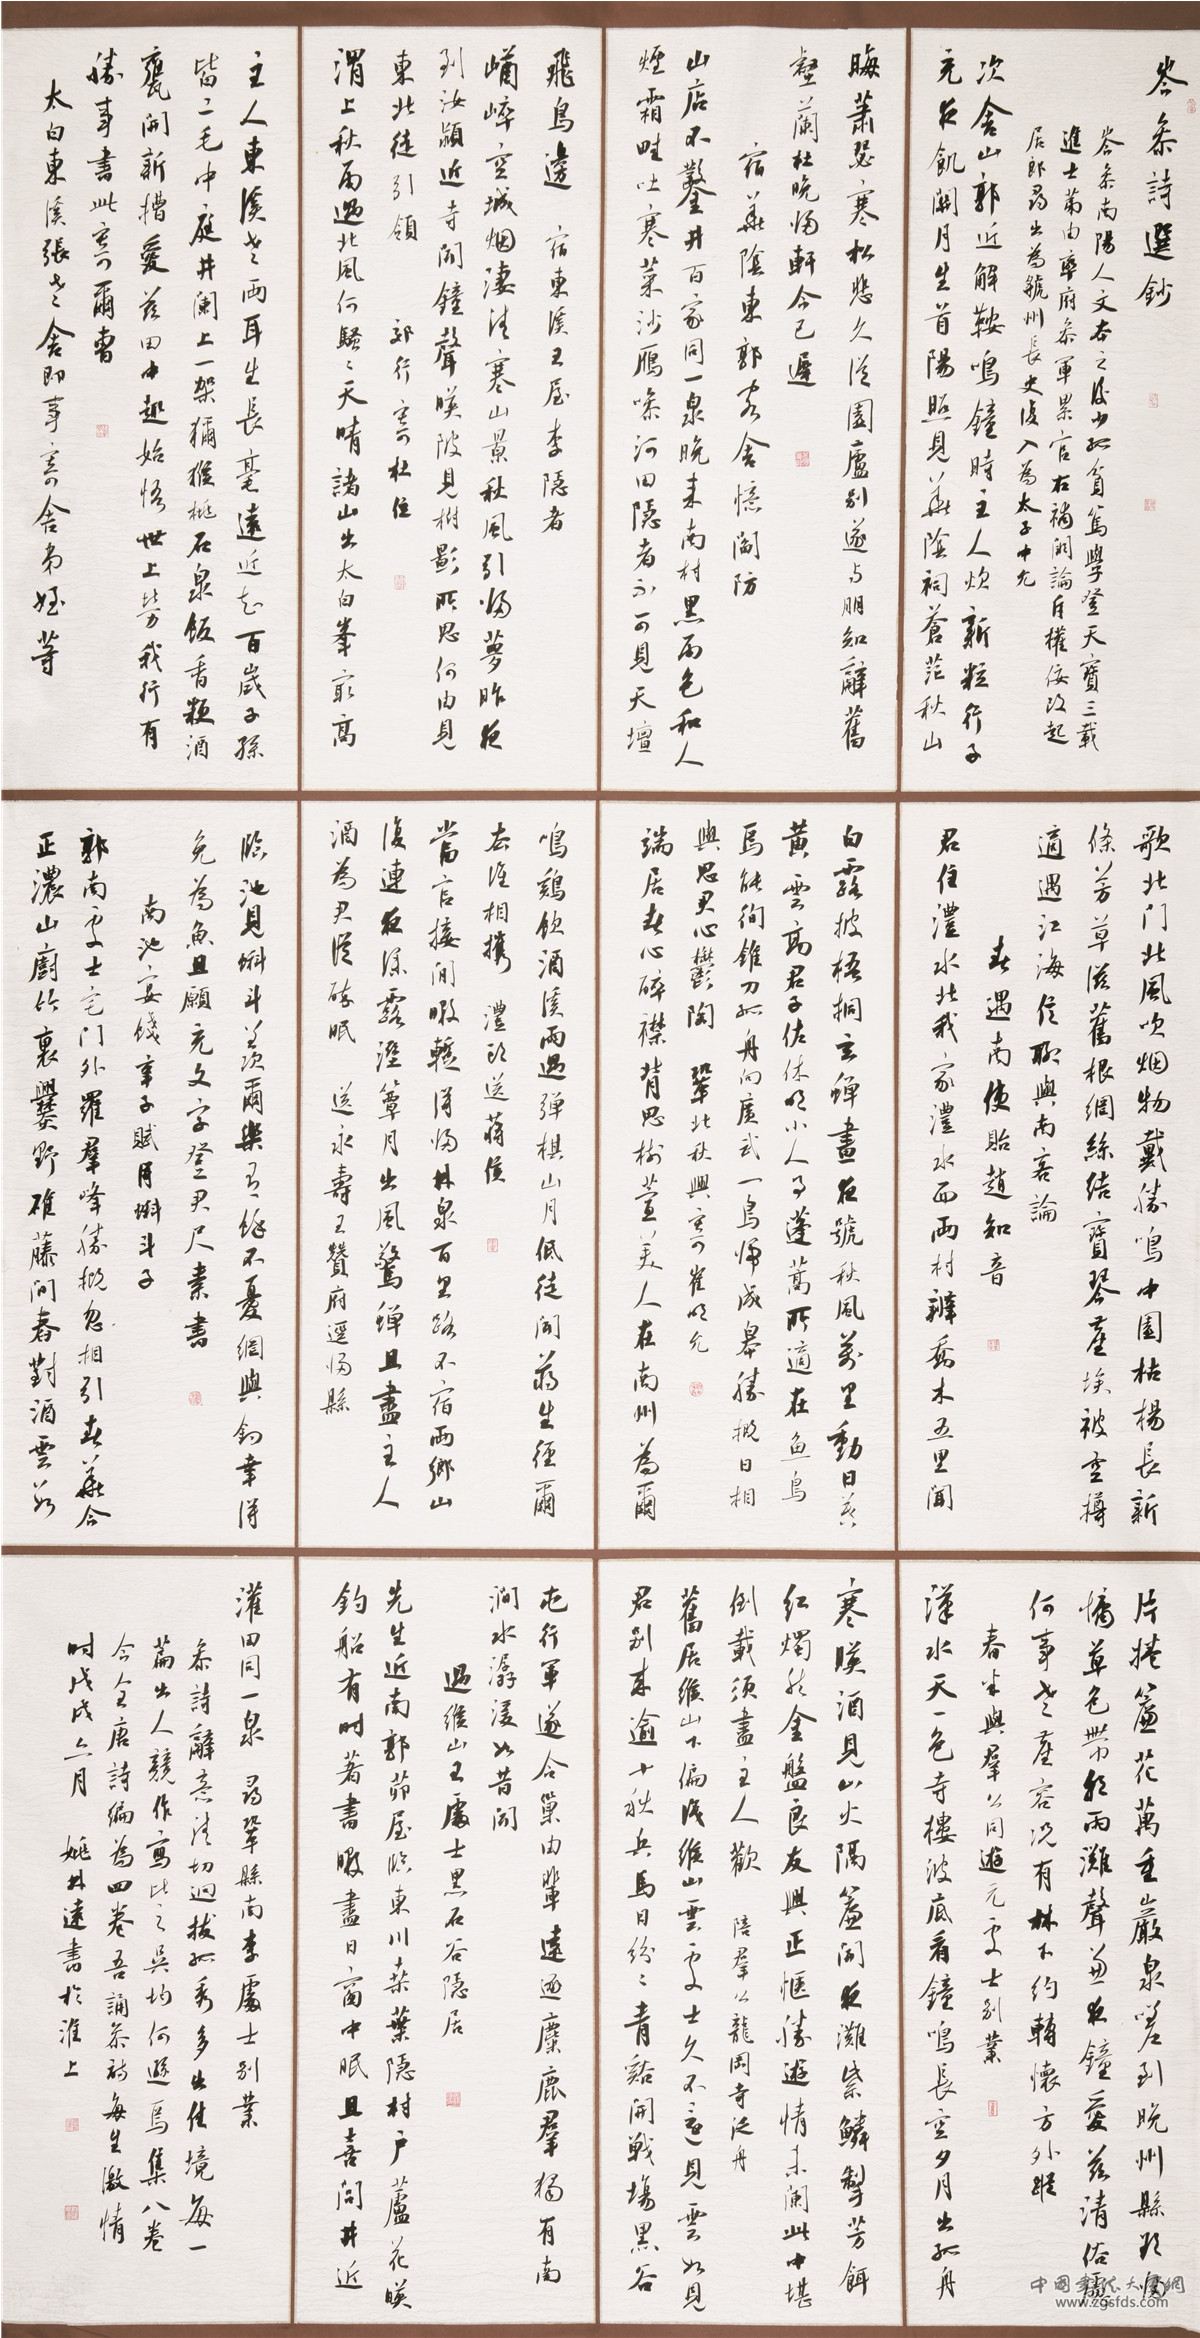 岑參詩選鈔
岑參南陽人文本之後少孤貧篤學登天寶三載
進士第由率府參軍累官右補闕論斥權佞改起
居郎尋出為虢州長史復入為太子中允
次舍山郭近解鞍鳴鐘時主人炊新粒行子
充夜飢關月生首陽照見華陰祠蒼茫秋山
晦蕭瑟寒松悲久從園廬別遂與朋知辭舊
壑蘭杜晚歸軒今已遲
宿華陰東郭客舍憶閻防
山店不鑿井百家同一泉晚來南村黑雨色和人
煙霜畦吐寒菜沙雁噪河田隱者不可見天壇
飛鳥邊 宿東溪王屋李隱者
崷崪空城烟淒清寒山景秋風引歸夢昨夜
到汝潁近寺聞鐘聲映陂見樹影所思何由見
東北徒引領 郊行寄杜位
渭上秋雨過北風何騷〻天晴諸山出太白峯最高
主人東溪老兩耳生長毫遠近知百歲子孫
皆二毛中庭井闌上一架獼猴桃石泉飯香粳酒
甕開新槽愛茲田中趣始悟世上勞我行有
勝事書此寄爾曹
太白東溪張老舍即事寄舍弟姪等
歌北門北風吹烟物戴勝鳴中園枯楊長新
條芳草滋舊根網絲結寶琴塵埃被空樽
適遇江海信聊與南客論
春遇南使貽趙知音
君住灃水北我家灃水西兩村辨喬木五里聞
白露披梧桐玄蟬晝夜號秋風萬里動日暮
黃雲高君子佐休明小人事蓬蒿所適在魚鳥
焉能徇錐刀孤舟向廣武一鳥歸成皋勝概日相
與思君心鬱陶 鞏北秋興寄崔明允
端居春心醉襟背思樹萱美人在南州為爾
鳴雞飲酒溪雨過彈棋山月低徒開蔣生徑爾
去誰相攜 灃頭送蔣侯
當官接閒暇暫得歸林泉百里路不宿兩鄉山
復連夜深露濕簟月出風驚蟬且盡主人
酒為君從醉眠 送永壽王贊府逕歸縣
臨池見蝌斗羨爾樂有餘不憂網與鈎幸得
免為魚且願充文字登君尺素書
南池宴餞辛子賦得蝌斗子
郭南處士宅門外羅羣峰勝概忽相引春華今
正濃山廚竹裏爨野碓藤間舂對酒雲數
片捲簾花萬重巖泉嗟到晚州縣欲歸
慵草色帶朝雨灘聲兼夜鐘愛茲清俗慮
何事老塵容況有林下約轉懷方外蹤
春半與羣公同遊元處士別業
漢水天一色寺樓波底看鐘鳴長空夕月出孤舟
寒映酒見山火隔簾聞夜灘紫鱗掣芳餌
紅燭然金盤良友興正愜勝遊情未闌此中堪
倒載須盡主人歡 陪羣公龍岡寺泛舟
舊居緱山下偏識緱山雲處士久不還見雲如見
君別來逾十秋兵馬日紛〻青谿開戰場黑谷
屯行軍遂令巢由輩遠逐麋鹿羣獨有南
澗水潺湲如昔聞
過緱山王處士黑石谷隱居
先生近南郭茅屋臨東川桑葉隱村戶蘆花映
釣船有時著書暇盡日窗中眠且喜閭井近
灌田同一泉 尋鞏縣南李處士別業
參詩辭意清切迥拔孤秀多出佳境每一
篇出人競傳寫比之吳均何遜焉集八卷
今全唐詩編為四卷吾誦參詩每生激情
時戊戌六月 姚林遠書於淮上
www.zgsfds.com